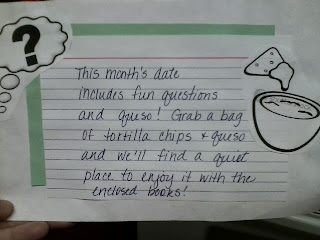 ?
This month's date
includes fun questions
and queso! Grab a bag
of tortilla chips & queso
and we'll find a quiet
place to enjoy it with the
enclosed books!